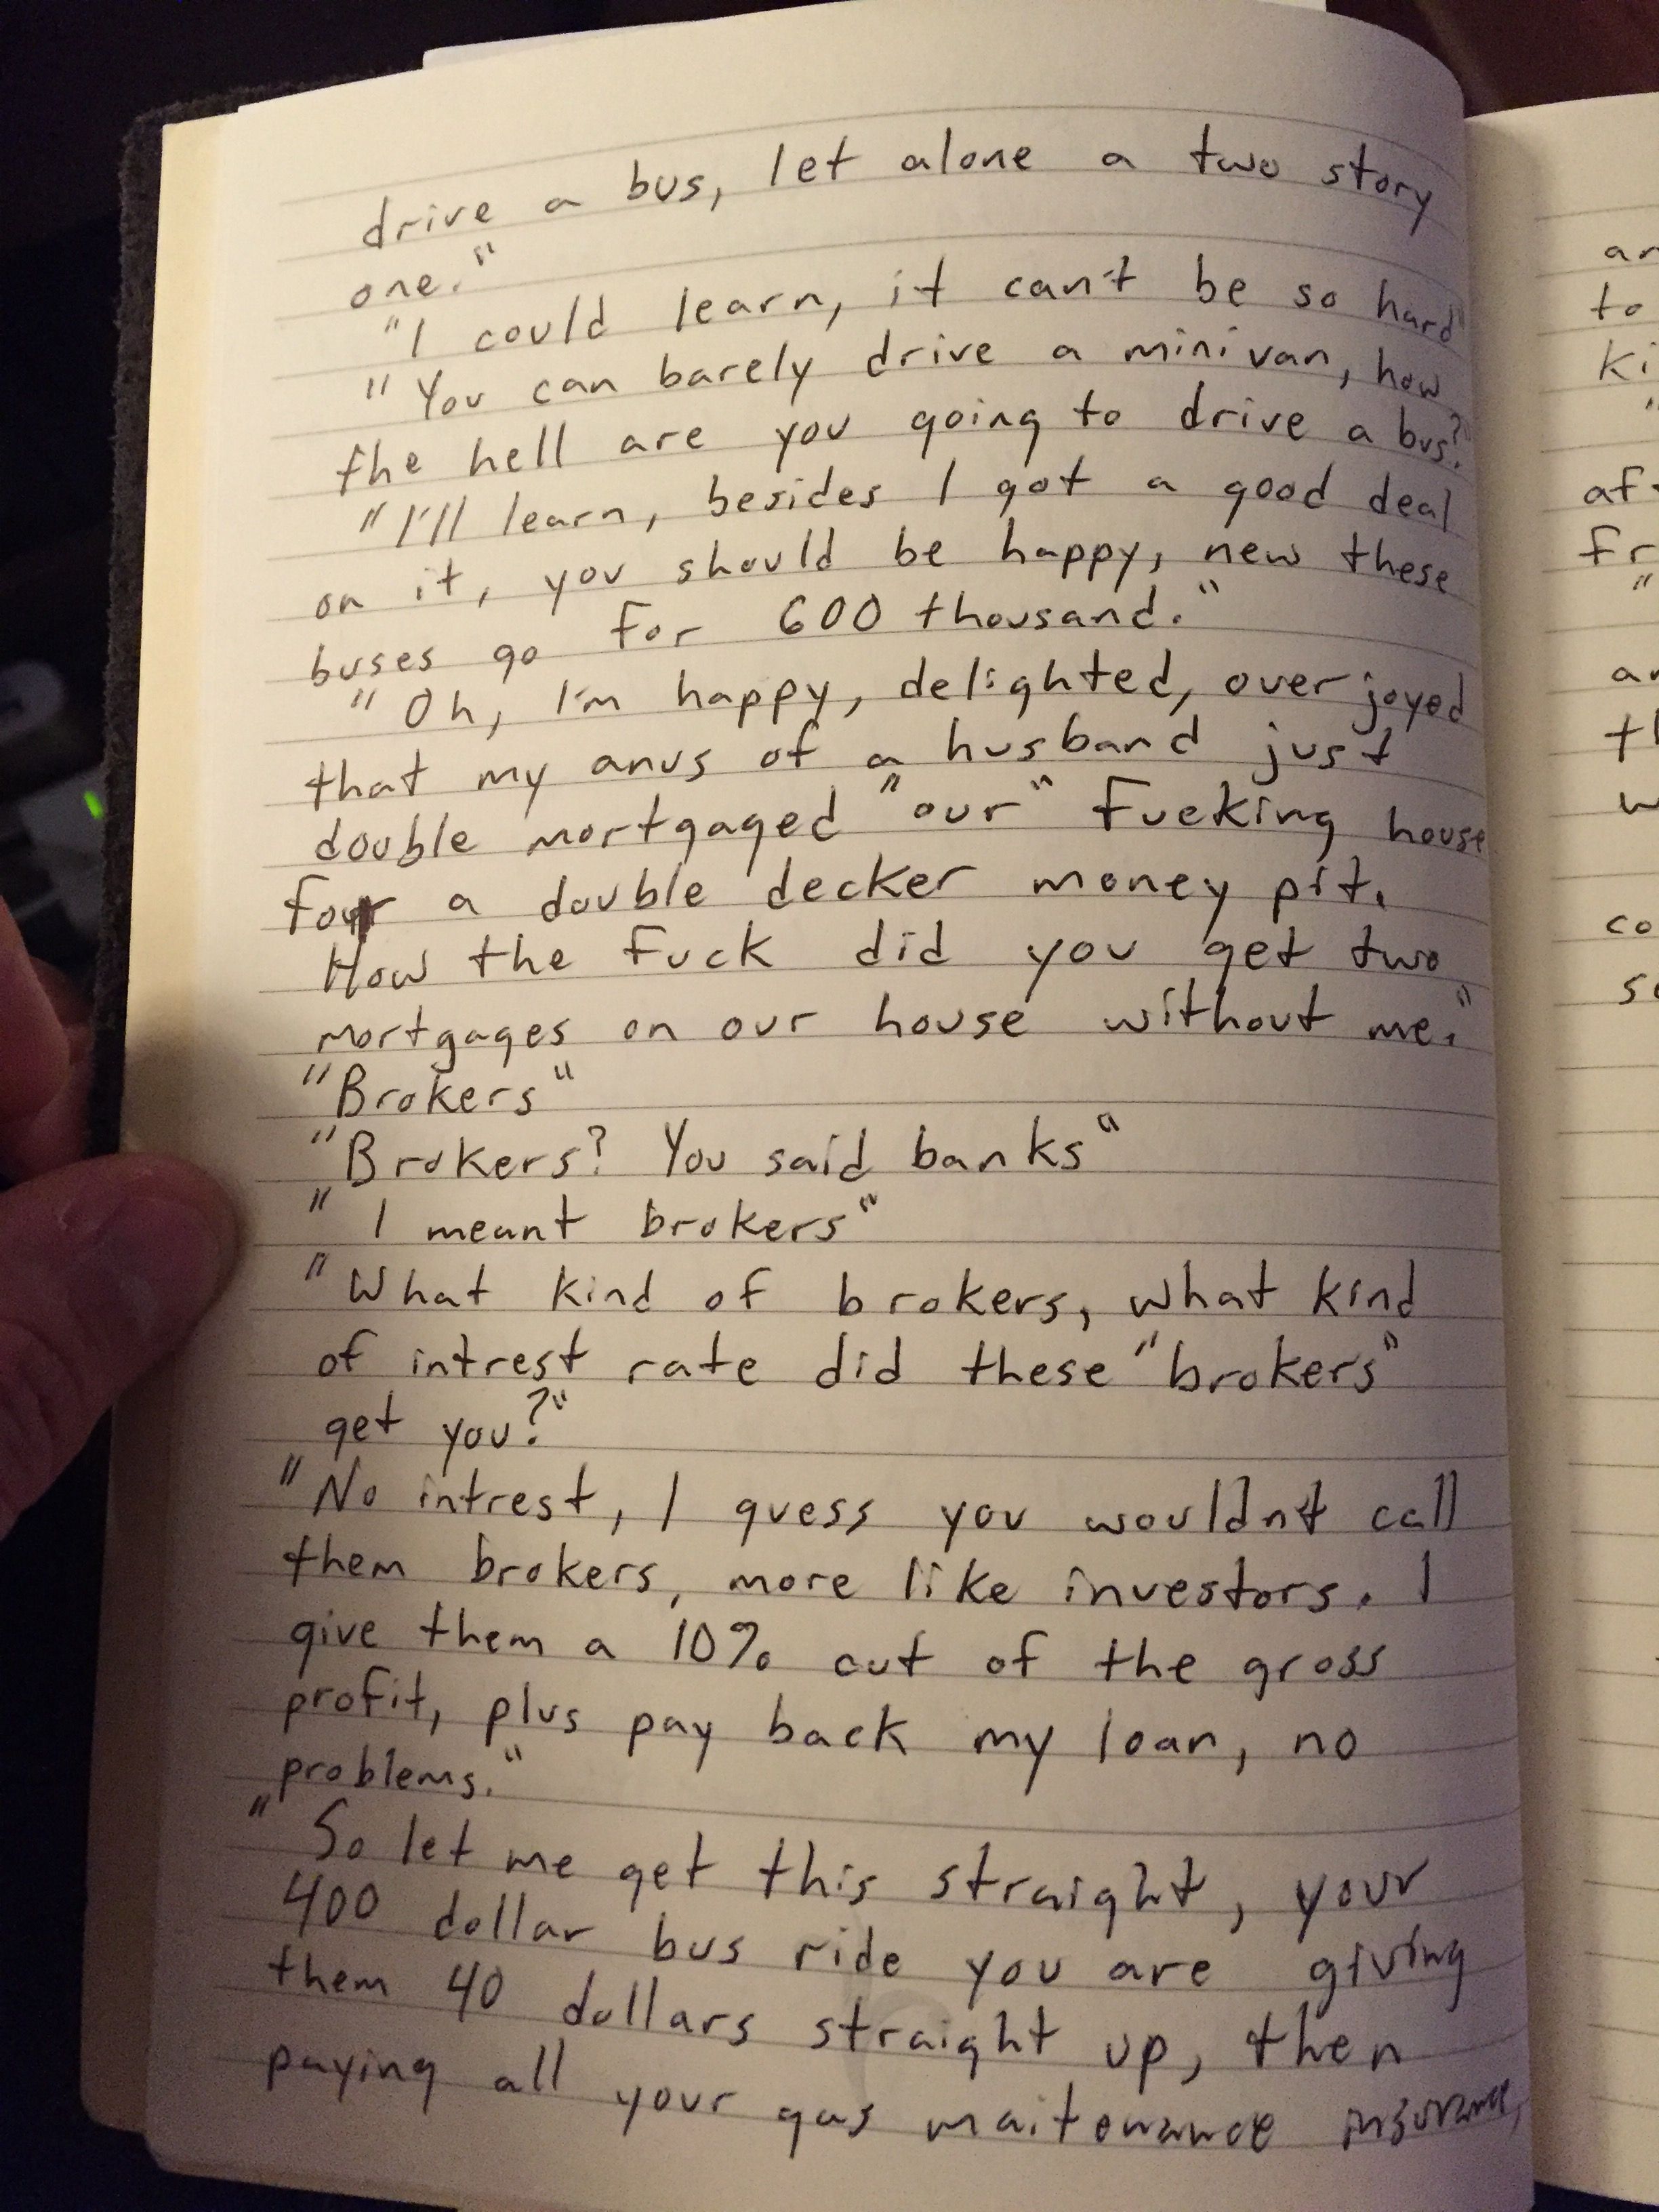 drive a bus, let alone a two story
one."
"I could learn, it can't be so hard"
"You can barely drive a minivan, how
the hell are you going to drive a bus?"
"I'll learn, besides I got a good deal
on it, you should be happy, new these
buses go for 600 thousand."
"Oh, I'm happy, delighted, over joyed
that my anus of a husband just
double mortgaged "our" fucking house
for a double decker money pit.
How the fuck did you get two
mortgages on our house without me."
"Brokers"
"Brokers? You said banks"
"I meant brokers"
"What kind of brokers, what kind
of intrest rate did these "brokers"
get you?"
"No intrest, I guess you wouldn't call
them brokers, more like investors. I
give them a 10% cut of the gross
profit, plus pay back my loan, no
problems."
"So let me get this straight, your
400 dollar bus ride you are giving
them 40 dollars straight up, then
paying all your gas maitenance insurance,
an
to
ki
"
af
fr
"
an
th
w
co
so